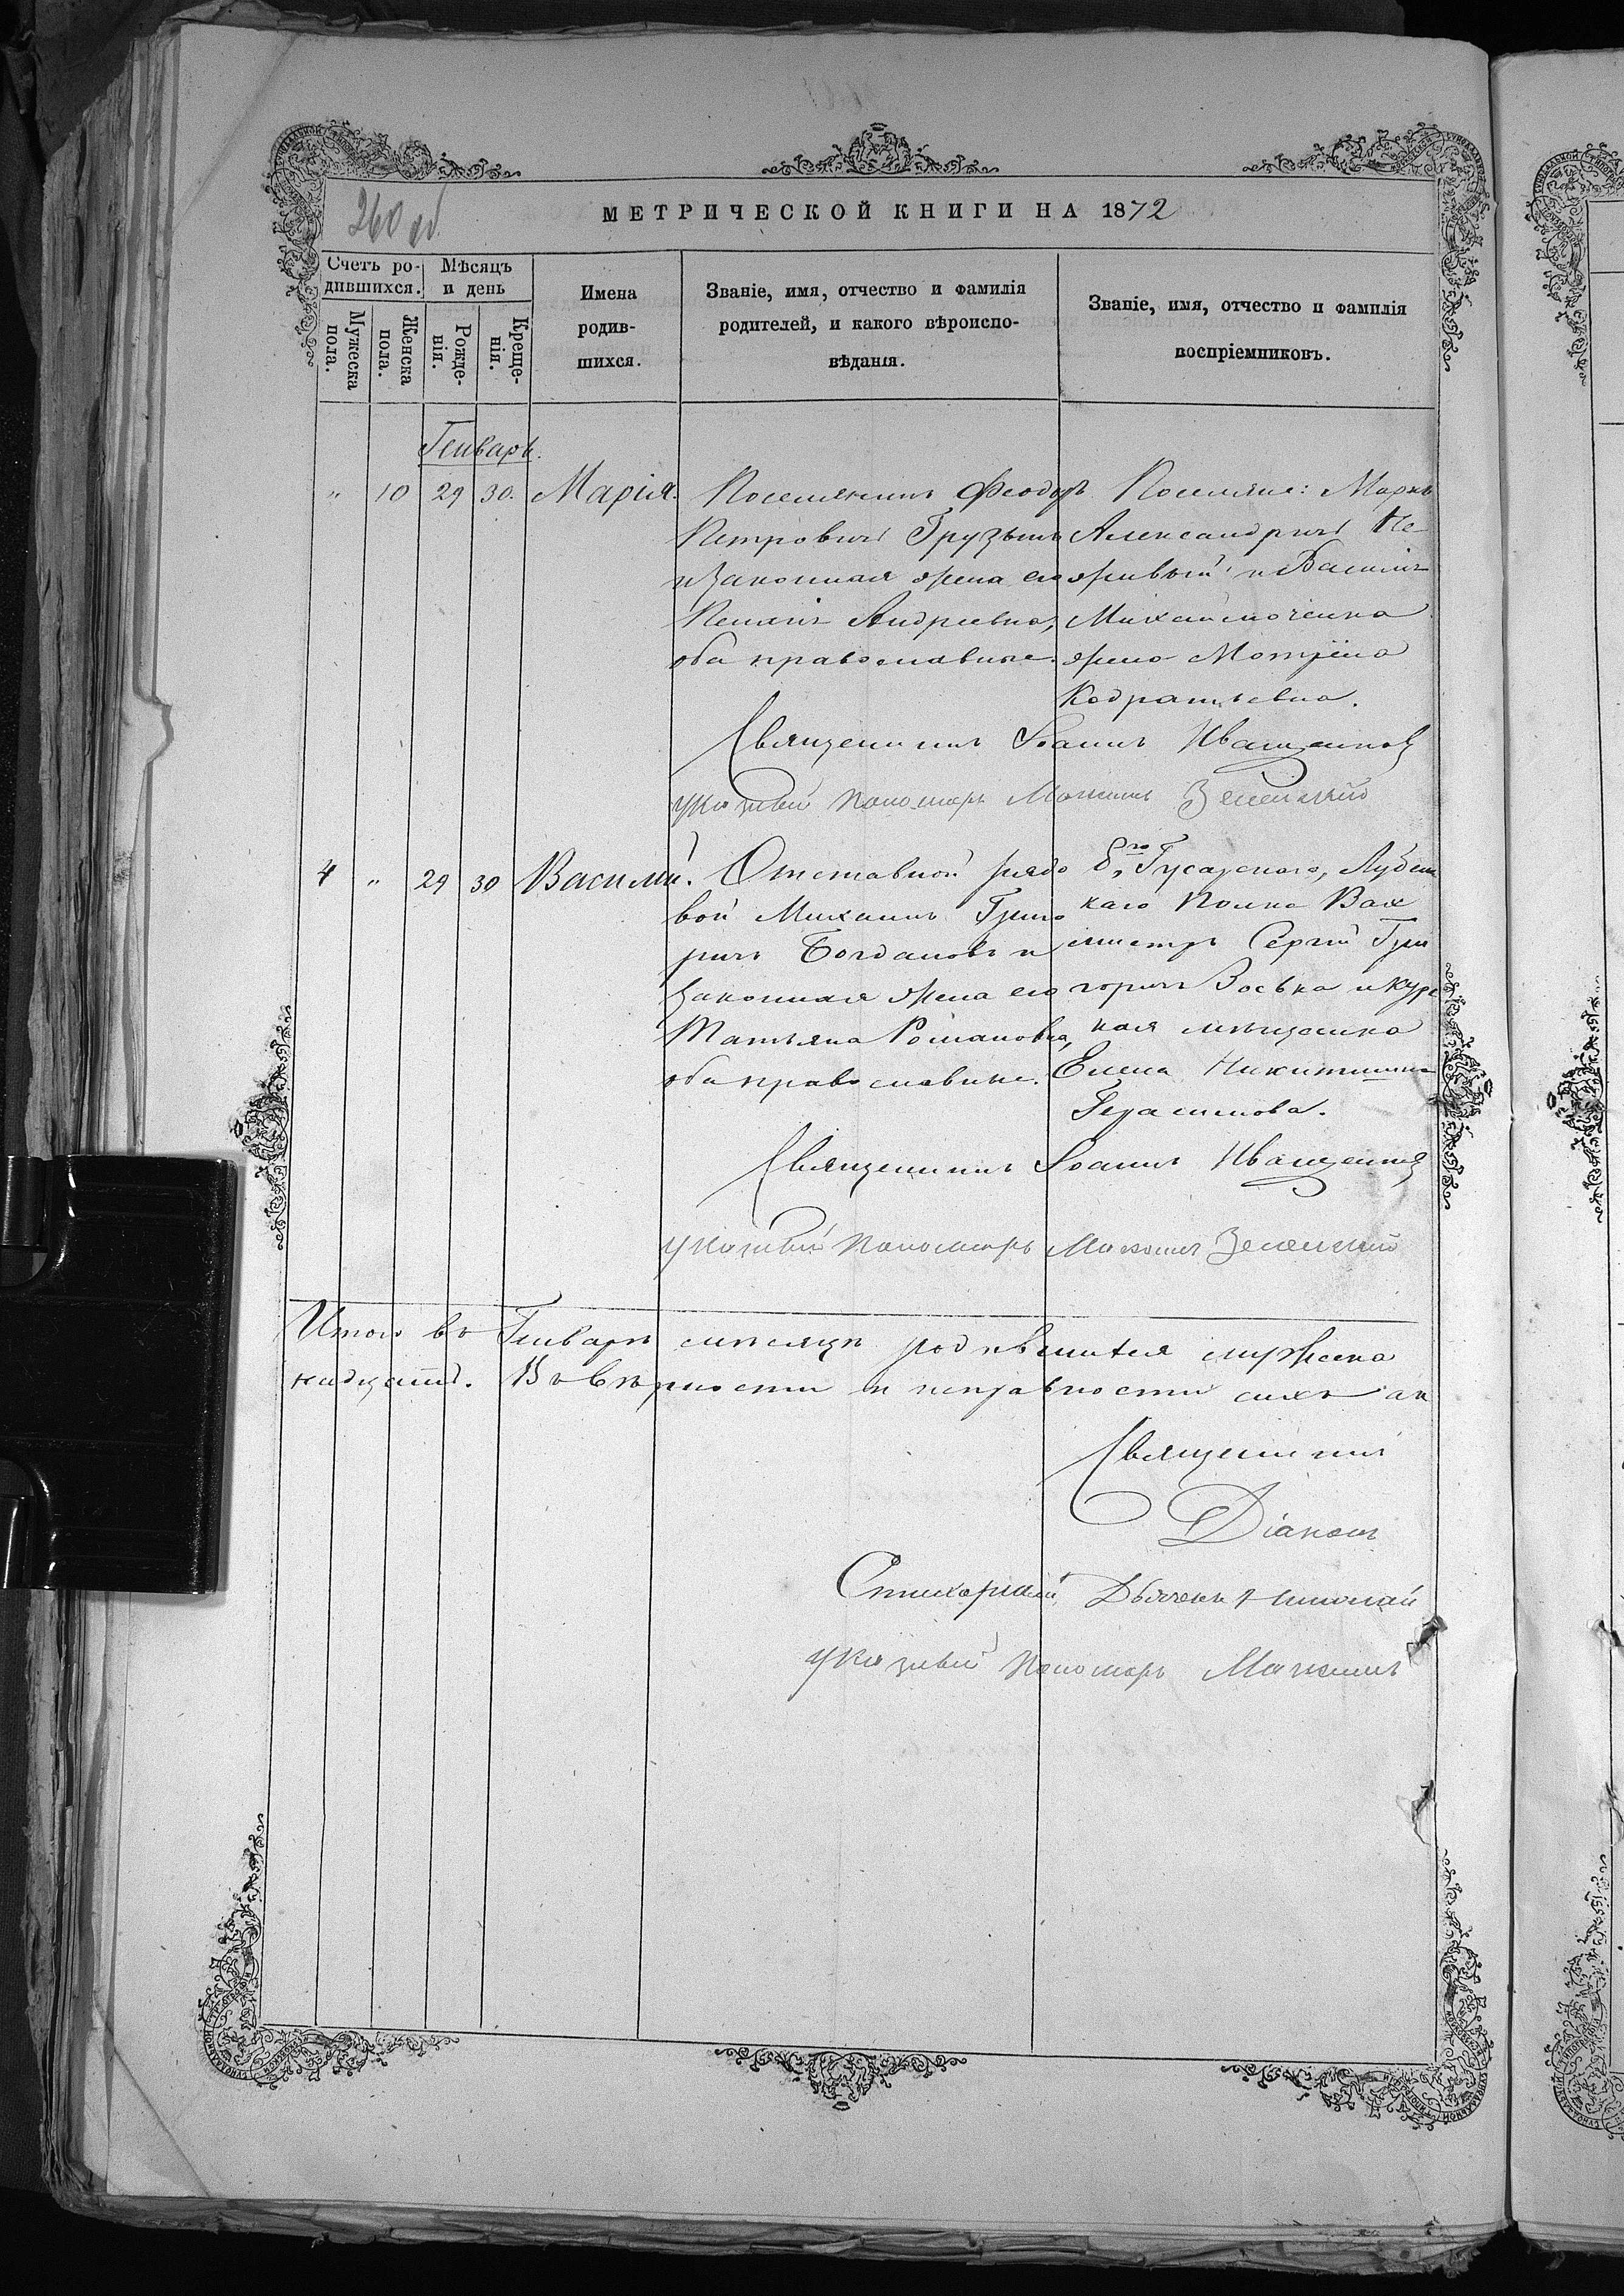 260 об
МЕТРИЧЕСКОЙ КНИГИ НА 1872
Счетъ ро-
дившихся.
Мужеска
пола.
Женска
пола.
Мѣсяцъ
и день
Рожде-
нія.
Креще-
нія.
Имена
родив-
шихся.
Званіе, имя, отчество и фамилія
родителей, и какого вѣроиспо-
вѣданія.
Званіе, имя, отчество и фамилія
воспріемниковъ.
Генварь.
" 10 29 30. Марія.
Поселянинъ Феодоръ
Петровичъ
и законная жена его
Андреевна,
оба православные.
Поселяне: Маркъ
Михайличенка
жена
Кодратьевна.
Священникъ Іоаннъ Иващенков
Указный Пономарь Максимъ Зеленскій
4 " 29 30 Василій.
Отставной рядо
вой Михаилъ Григо
ричъ Богдановъ и
законная жена его
Татьяна Романовна,
оба православные.
Гусарскаго, Лубен
каго Полка Вах
мистръ Сергій Гри
горичъ Зоська и Курс
кая мѣщанка
Елена Никитишна
Герасимова.
Священникъ Іоаннъ Иващенков
Указный Пономарь Максимъ Зеленскій
Итого въ Генварѣ мѣсяцѣ родившихся мужеска
надцать. Въ вѣрности и исправности сихъ ак
Священникъ
Діаконъ
Стихарный Дьячекъ Николай
Указный Пономарь Максимъ